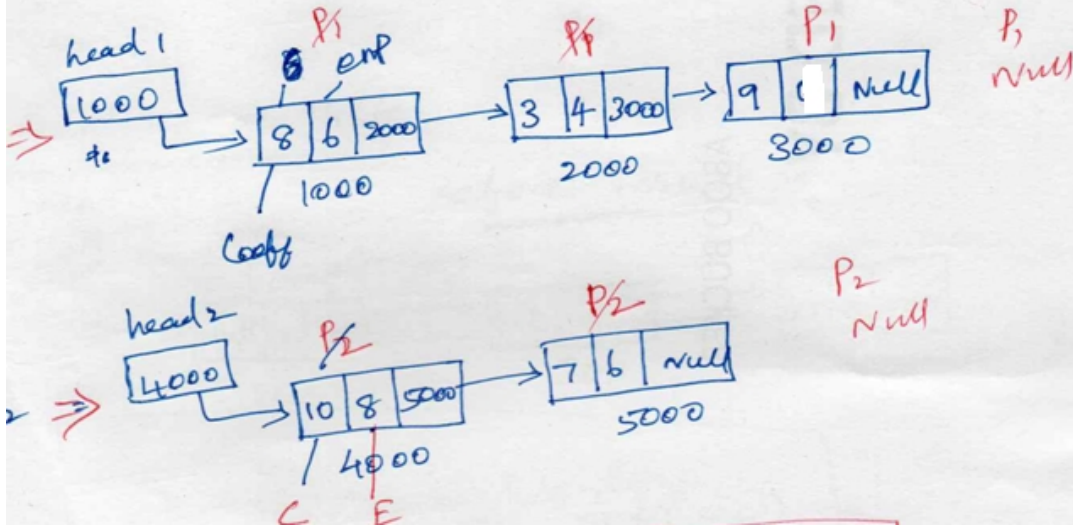 head 1
1000
P1
exp
8 6 2000
1000
Coeff
P1
3 4 3000
2000
P1
9 Null
3000
P1
Null
head 2
4000
P2
10 8 5000
4000
C E
P2
7 6 Null
5000
P2
Null